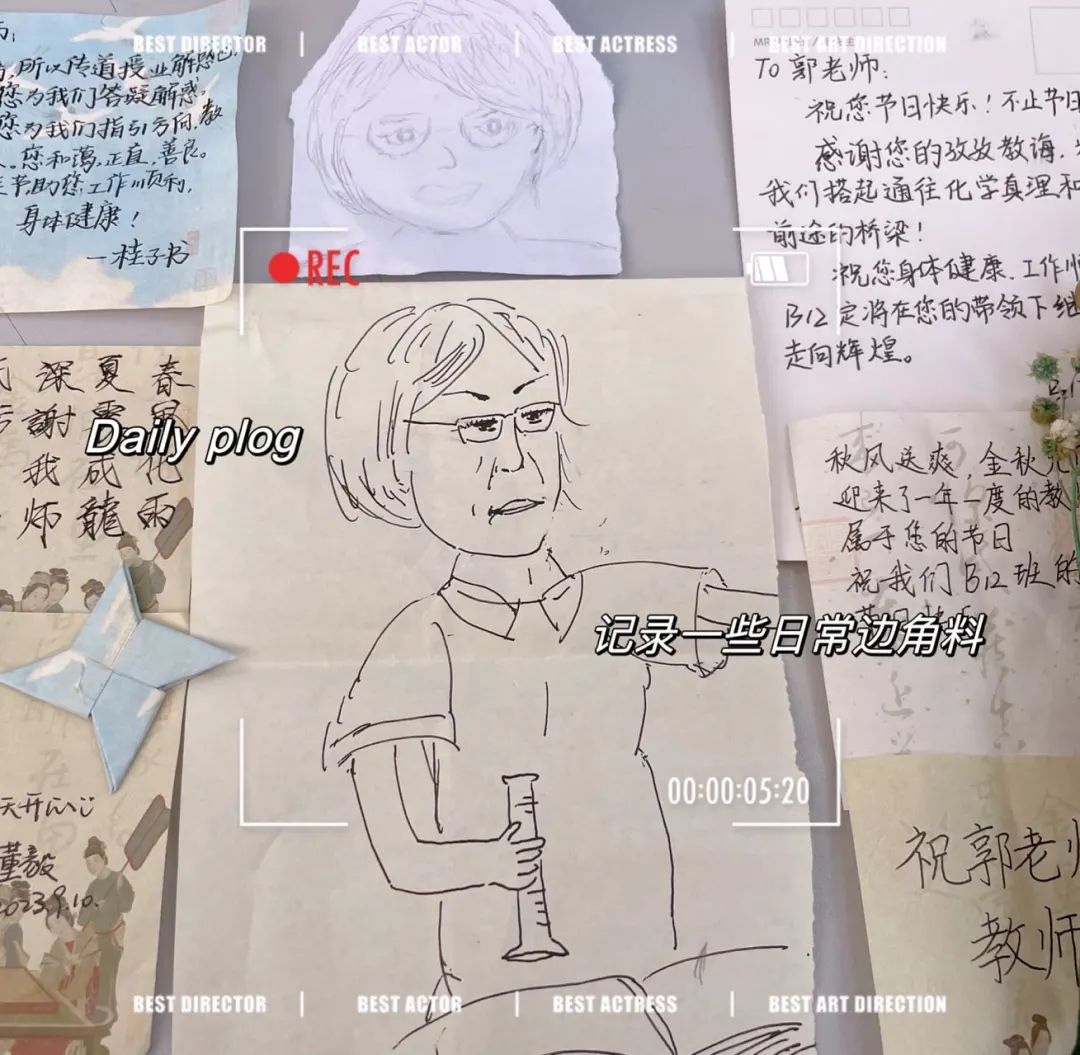 BEST DIRECTOR | BEST ACTOR | BEST ACTRESS | BEST ART DIRECTION
所以传道授业解惑也
您为我们答疑解惑,
您为我们指引方向,教
您和蔼,正直,善良。
您工作顺利,
身体健康!
—桂子书
To 郭老师:
祝您节日快乐!不止节日
感谢您的孜孜教诲,
我们搭起通往化学真理和
前途的桥梁!
祝您身体健康、工作顺
B12定将在您的带领下继
走向辉煌。
REC
春風化雨
夏雲成龍
深謝我师
Daily plog
秋风送爽,金秋
迎来了一年一度的教
属于您的节日
祝我们B12班的
记录一些日常边角料
00:00:05:20
天开心
董毅
2023.9.10.
祝郭老师
教师
BEST DIRECTOR | BEST ACTOR | BEST ACTRESS | BEST ART DIRECTION